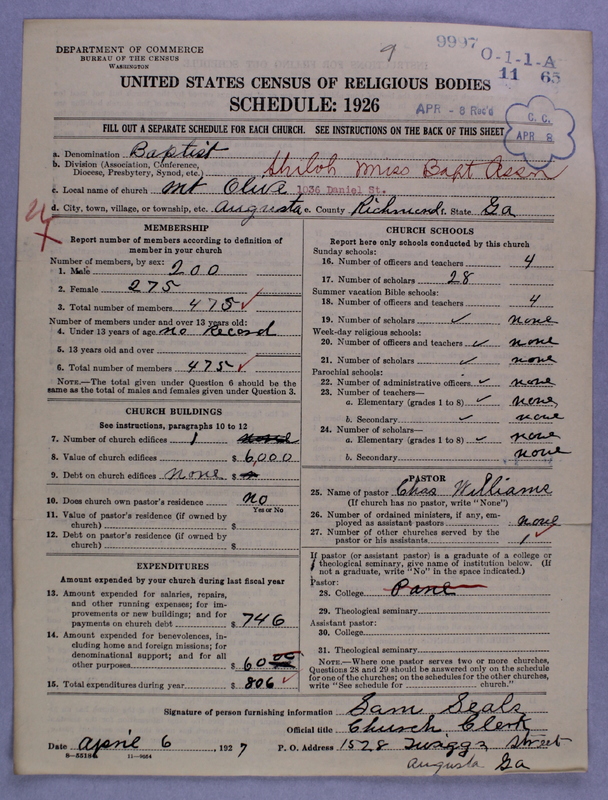 9
9997
O-1-1-A
11 65
DEPARTMENT OF COMMERCE
BUREAU OF THE CENSUS
WASHINGTON
UNITED STATES CENSUS OF RELIGIOUS BODIES
SCHEDULE: 1926
APR - 8 Rec'd
C. C.
APR 8
FILL OUT A SEPARATE SCHEDULE FOR EACH CHURCH. SEE INSTRUCTIONS ON THE BACK OF THIS SHEET
a. Denomination Baptist
b. Division (Association, Conference, Diocese, Presbytery, Synod, etc.) Shiloh Miss Bapt Assn
c. Local name of church Mt Olive 1036 Daniel St.
d. City, town, village, or township, etc. Augusta e. County Richmond f. State Ga
MEMBERSHIP
Report number of members according to definition of
member in your church
Number of members, by sex:
1. Male 200
2. Female 275
3. Total number of members 475
Number of members under and over 13 years old:
4. Under 13 years of age no Record
5. 13 years old and over
6. Total number of members 475
NOTE.—The total given under Question 6 should be the
same as the total of males and females given under Question 3.
CHURCH BUILDINGS
See instructions, paragraphs 10 to 12
7. Number of church edifices 1
8. Value of church edifices $ 6,000
9. Debt on church edifices None $
10. Does church own pastor's residence? no
Yes or No
11. Value of pastor's residence (if owned by
church) $
12. Debt on pastor's residence (if owned by
church) $
EXPENDITURES
Amount expended by your church during last fiscal year
13. Amount expended for salaries, repairs,
and other running expenses; for im-
provements or new buildings; and for
payments on church debt $ 746
14. Amount expended for benevolences, in-
cluding home and foreign missions; for
denominational support; and for all
other purposes $ 60 00
15. Total expenditures during year $ 806
CHURCH SCHOOLS
Report here only schools conducted by this church
Sunday schools:
16. Number of officers and teachers 4
17. Number of scholars 28
Summer vacation Bible schools:
18. Number of officers and teachers 4
19. Number of scholars none
Week-day religious schools:
20. Number of officers and teachers none
21. Number of scholars none
Parochial schools:
22. Number of administrative officers none
23. Number of teachers—
a. Elementary (grades 1 to 8) none
b. Secondary none
24. Number of scholars—
a. Elementary (grades 1 to 8) none
b. Secondary none
PASTOR
25. Name of pastor Chas Williams
(If church has no pastor, write "None")
26. Number of ordained ministers, if any, em-
ployed as assistant pastors none
27. Number of other churches served by the
pastor or his assistants 1
If pastor (or assistant pastor) is a graduate of a college or
theological seminary, give name of institution below. (If
not a graduate, write "No" in the space indicated.)
Pastor:
28. College Pane
29. Theological seminary
Assistant pastor:
30. College
31. Theological seminary
NOTE.—Where one pastor serves two or more churches,
Questions 28 and 29 should be answered only on the schedule
for one of the churches; on the schedules for the other churches,
write "See schedule for church."
Signature of person furnishing information Sam Seals
Official title Church Clerk
Date April 6, 1927 P. O. Address 1528 Twiggs Street
Augusta Ga
11—9054